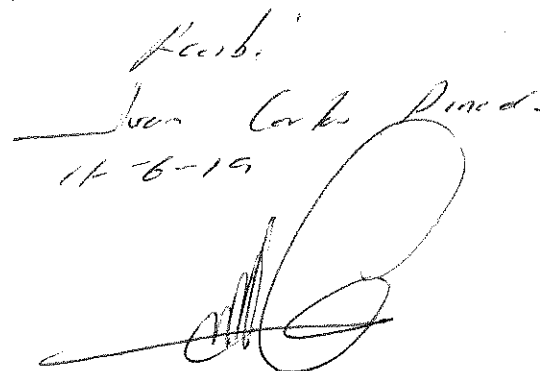 Recibí
Juan Carlos Pineda
11-6-19